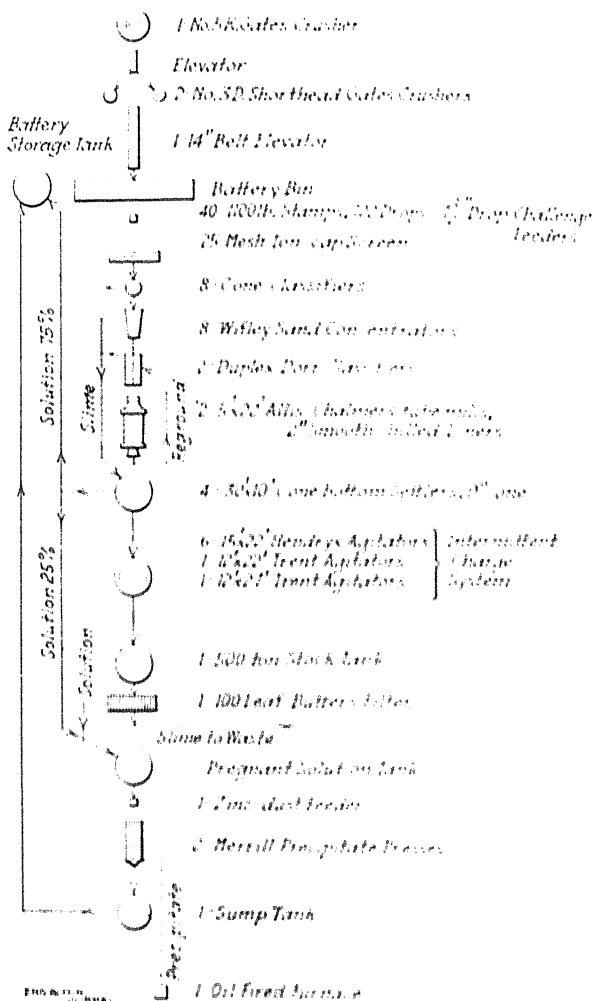 1-No.5 K. Gates Crusher
Elevator
2-No.3 D. Shorthead Gates Crushers
Battery
Storage tank
1-14" Belt Elevator
Battery Bin
40-1100 lb. Stamps, Drop Challenge
Feeders
25 Mesh Screen
8-Cone Classifiers
8-Wifley Sand Concentrators
2-Duplex Dorr Classifiers
Allis Chalmers tube mills,
2" Smooth Liners
Solution 75%
Slime
Reground
4-30'x10' Cone bottom Settlers
6-15'x22' Hendryx Agitators
1-12'x22' Trent Agitators
1-12'x24' Trent Agitators
Intermittent
Charge
System
Solution 25%
Solution
1-500 ton Stock Tank
1-100 Leaf Battery Filter
Slime to Waste
Pregnant Solution Tank
1-Zinc dust feeder
2-Merrill Precipitate Presses
1-Sump Tank
Precipitate
1-Oil Fired Furnace